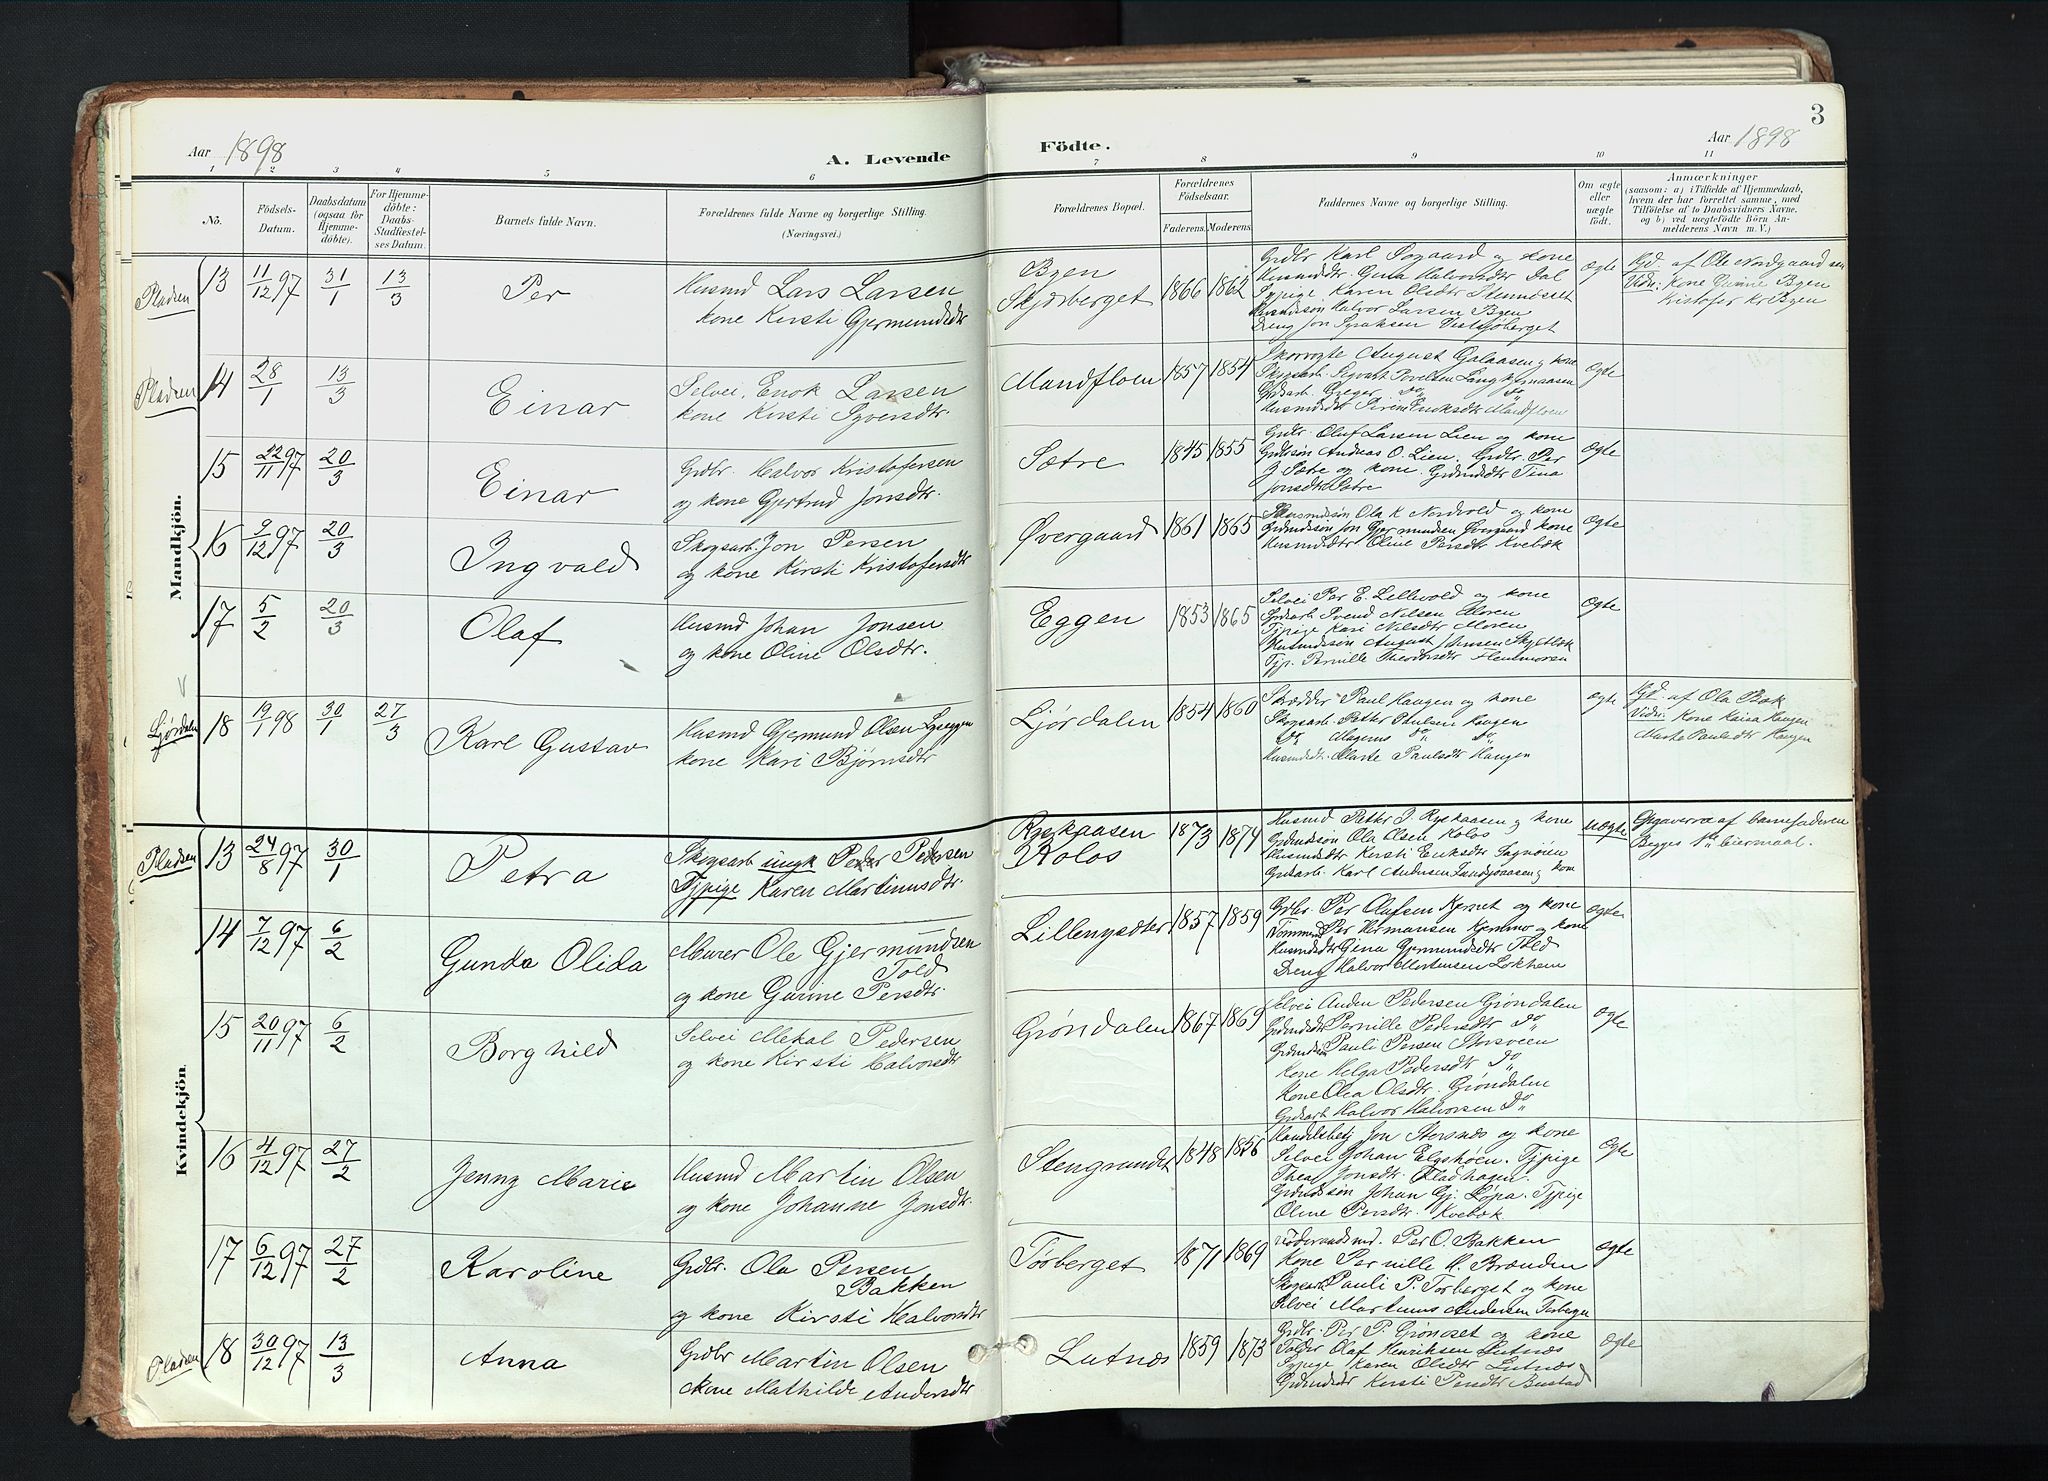 3
Aar 1898
A. Levende
Födte.
Aar 1898
1 2 3 4 5 6 7 8 9 10 11
Nö.
Födsels-
Datum.
Daabsdatum
(ogsaa for
Hjemme-
döbte).
For Hjemme-
döbte:
Daabs-
Stadfæstel-
ses Datum.
Barnets fulde Navn.
Forældrenes fulde Navne og borgerlige Stilling.
(Næringsvei.)
Forældrenes Bopæl.
Forældrenes
Födselsaar.
Faderens. Moderens.
Faddernes Navne og borgerlige Stilling.
Om ægte
eller
uægte
födt.
Anmærkninger
(saasom: a) i Tilfælde af Hjemmedaab,
hvem der har forrettet samme, med
Tilföielse af to Daabsvidners Navne.
og b) ved uægtefödte Börn An-
melderens Navn m. V.)
Mandkjön.
Pladsen 13 11/12 97 31/1 13/3 Per
Husmd Lars Larsen
kone Kirsti Gjermundsdtr
Byen
Skjærberget
1866 1862
Grdbr Karl Øvgaard og kone
Husmdsdtr. Guta Halvorsdtr Dal
Tjpige Karen Olsdtr Stenmdsset
Husmdssøn Halvor Larsen Byen
Dreng Jon Vestsjøberget
Ægte
Hjd af Ole Nordgaard sen
Vidn: Kone Gurine Byen
Kristofer Kr Byen
Pladsen 14 28/1 13/3 Einar
Selvei. Enok Larsen
kone Kirsti Syversdtr.
Mandfloen
1857 1854
Skovvogte August Galaasen og kone
Skogsarb. Sigvart Povelsen Lang
Grdsarb. Greger Do Do
Husmdsdtr Eriksdtr Mandfloen
ægte
15 22/11 97 20/3 Einar
Grdbr Halvor Kristofersen
og kone Gjertrud Jonsdtr.
Sætre
1845 1855
Grdbr. Oluf Larsen Lien og kone
Grdbrsøn Andreas O. Lien. Grdbr. Per
J Sætre og kone. Grdmdsdtr Tina
Jonsdtr Sætre
ægte
16 9/12 97 20/3 Ingvald
Skogsarb. Jon Persen
og kone Kirsti Kristofersdtr
Øvergaard
1861 1865
Husmdssøn Ola K Nordvold og kone
Grdmdssøn Jon Gjermundsen Øvergaard kone
Husmdsdtr Oline Persdtr Kvebæk
ægte
17 5/2 20/3 Olaf
Husmd Johan Jonsen
og kone Oline Olsdtr.
Eggen
1853 1865
Selvei Per E. Lillevold og kone
Grdsarb Svend Nilsen Moren
Tjpige Kari Nilsdtr Moren
Husmdssøn August Jensen
Tjp. Pernille Theodorsdtr Flenmoren
ægte
Ljørdalen 18 19/1 98 30/1 27/3 Karl Gustav
Husmd Gjermund Olsen Lyseggen
kone Kari Bjørnsdtr
Ljørdalen
1854 1860
Skrædder Paul Haugen og kone
Skogsarb. Petter Paulsen Haugen
Do Magnus Do Do
Husmdsdtr. Marte Paulsdtr Haugen
ægte
Hjd. af Ola Bæk
Vidn: Kone Kaisa Haugen
Marte Paulsdtr Haugen
Kvindekjön.
Pladsen 13 24/8 97 30/1 Petra
Skogsarb ungk Peder Pedersen
Tjpige Karen Martinusdtr.
Ryskaasen
Kolos
1873 1874
Husmd Petter J. Ryskaasen og kone
Grdmdssøn Ola Olsen Kolos
Husmdsdtr Kersti Eriksdtr Sagnøien
Grdsarb. Karl Andersen og kone
uægte
Opgaverne af barnefaderen
Begges No 1 leiermaal.
14 7/12 97 6/2 Gunda Olida
Murer Ole Gjermundsen
Told
og kone Gurine Persdtr.
Lillenysdter
1857 1859
Grdbr. Per Olafsen Kjernet og kone
Tømmermd Per Hermansen Kjemmo og kone
Husmdsdtr Gina Gjermundsdtr Told
Dreng Halvor Mortensen Løkhem
ægte
15 20/11 97 6/2 Borghild
Selvei Mekal Pedersen
og kone Kirsti Halvorsdtr
Grøndalen
1867 1869
Selvei Anden Pedersen Grøndalen
Grdmdsdtr Pernille Pedersdtr Do
Grdmdssøn Pauli Persen Storsveen
Kone Helga Pedersdtr Do
Kone Olea Olsdtr. Grøndalen
Grdsarb Halvor Halvorsen Do
ægte
16 4/12 97 27/2 Jenny Marie
Husmd Martin Olsen
og kone Johanne Jonsdtr.
Stengrundet
1848 1856
Handelsbetj Jon Storsnes og kone
Selvei Johan Elgshøen. Tjpige
Thea Jonsdtr. Fladhagen.
Grdmdssøn Johan Gj. Løpa. Tjpige
Oline Persdtr. Kvebæk
ægte
17 6/12 97 27/2 Karoline
Grdbr. Ola Persen
Bakken
og kone Kirsti Halvorsdtr
Tørberget
1871 1869
Føderaadsmd. Per O. Bakken
Kone Pernille H. Brænden
Skogsarb Pauli P. Tørberget og kone
Selvei Martinus Andersen Tørberget
ægte
Pladsen 18 30/12 97 13/3 Anna
Grdbr Martin Olsen
kone Mathilde Andersdtr
Lutnes
1859 1873
Grdbr. Per P. Grønoset og kone
Tolder Olaf Henriksen Lutnæs
Tjpige Karen Olsdtr Lutnæs
Grdmdsdtr Kersti Persdtr Bustad
ægte